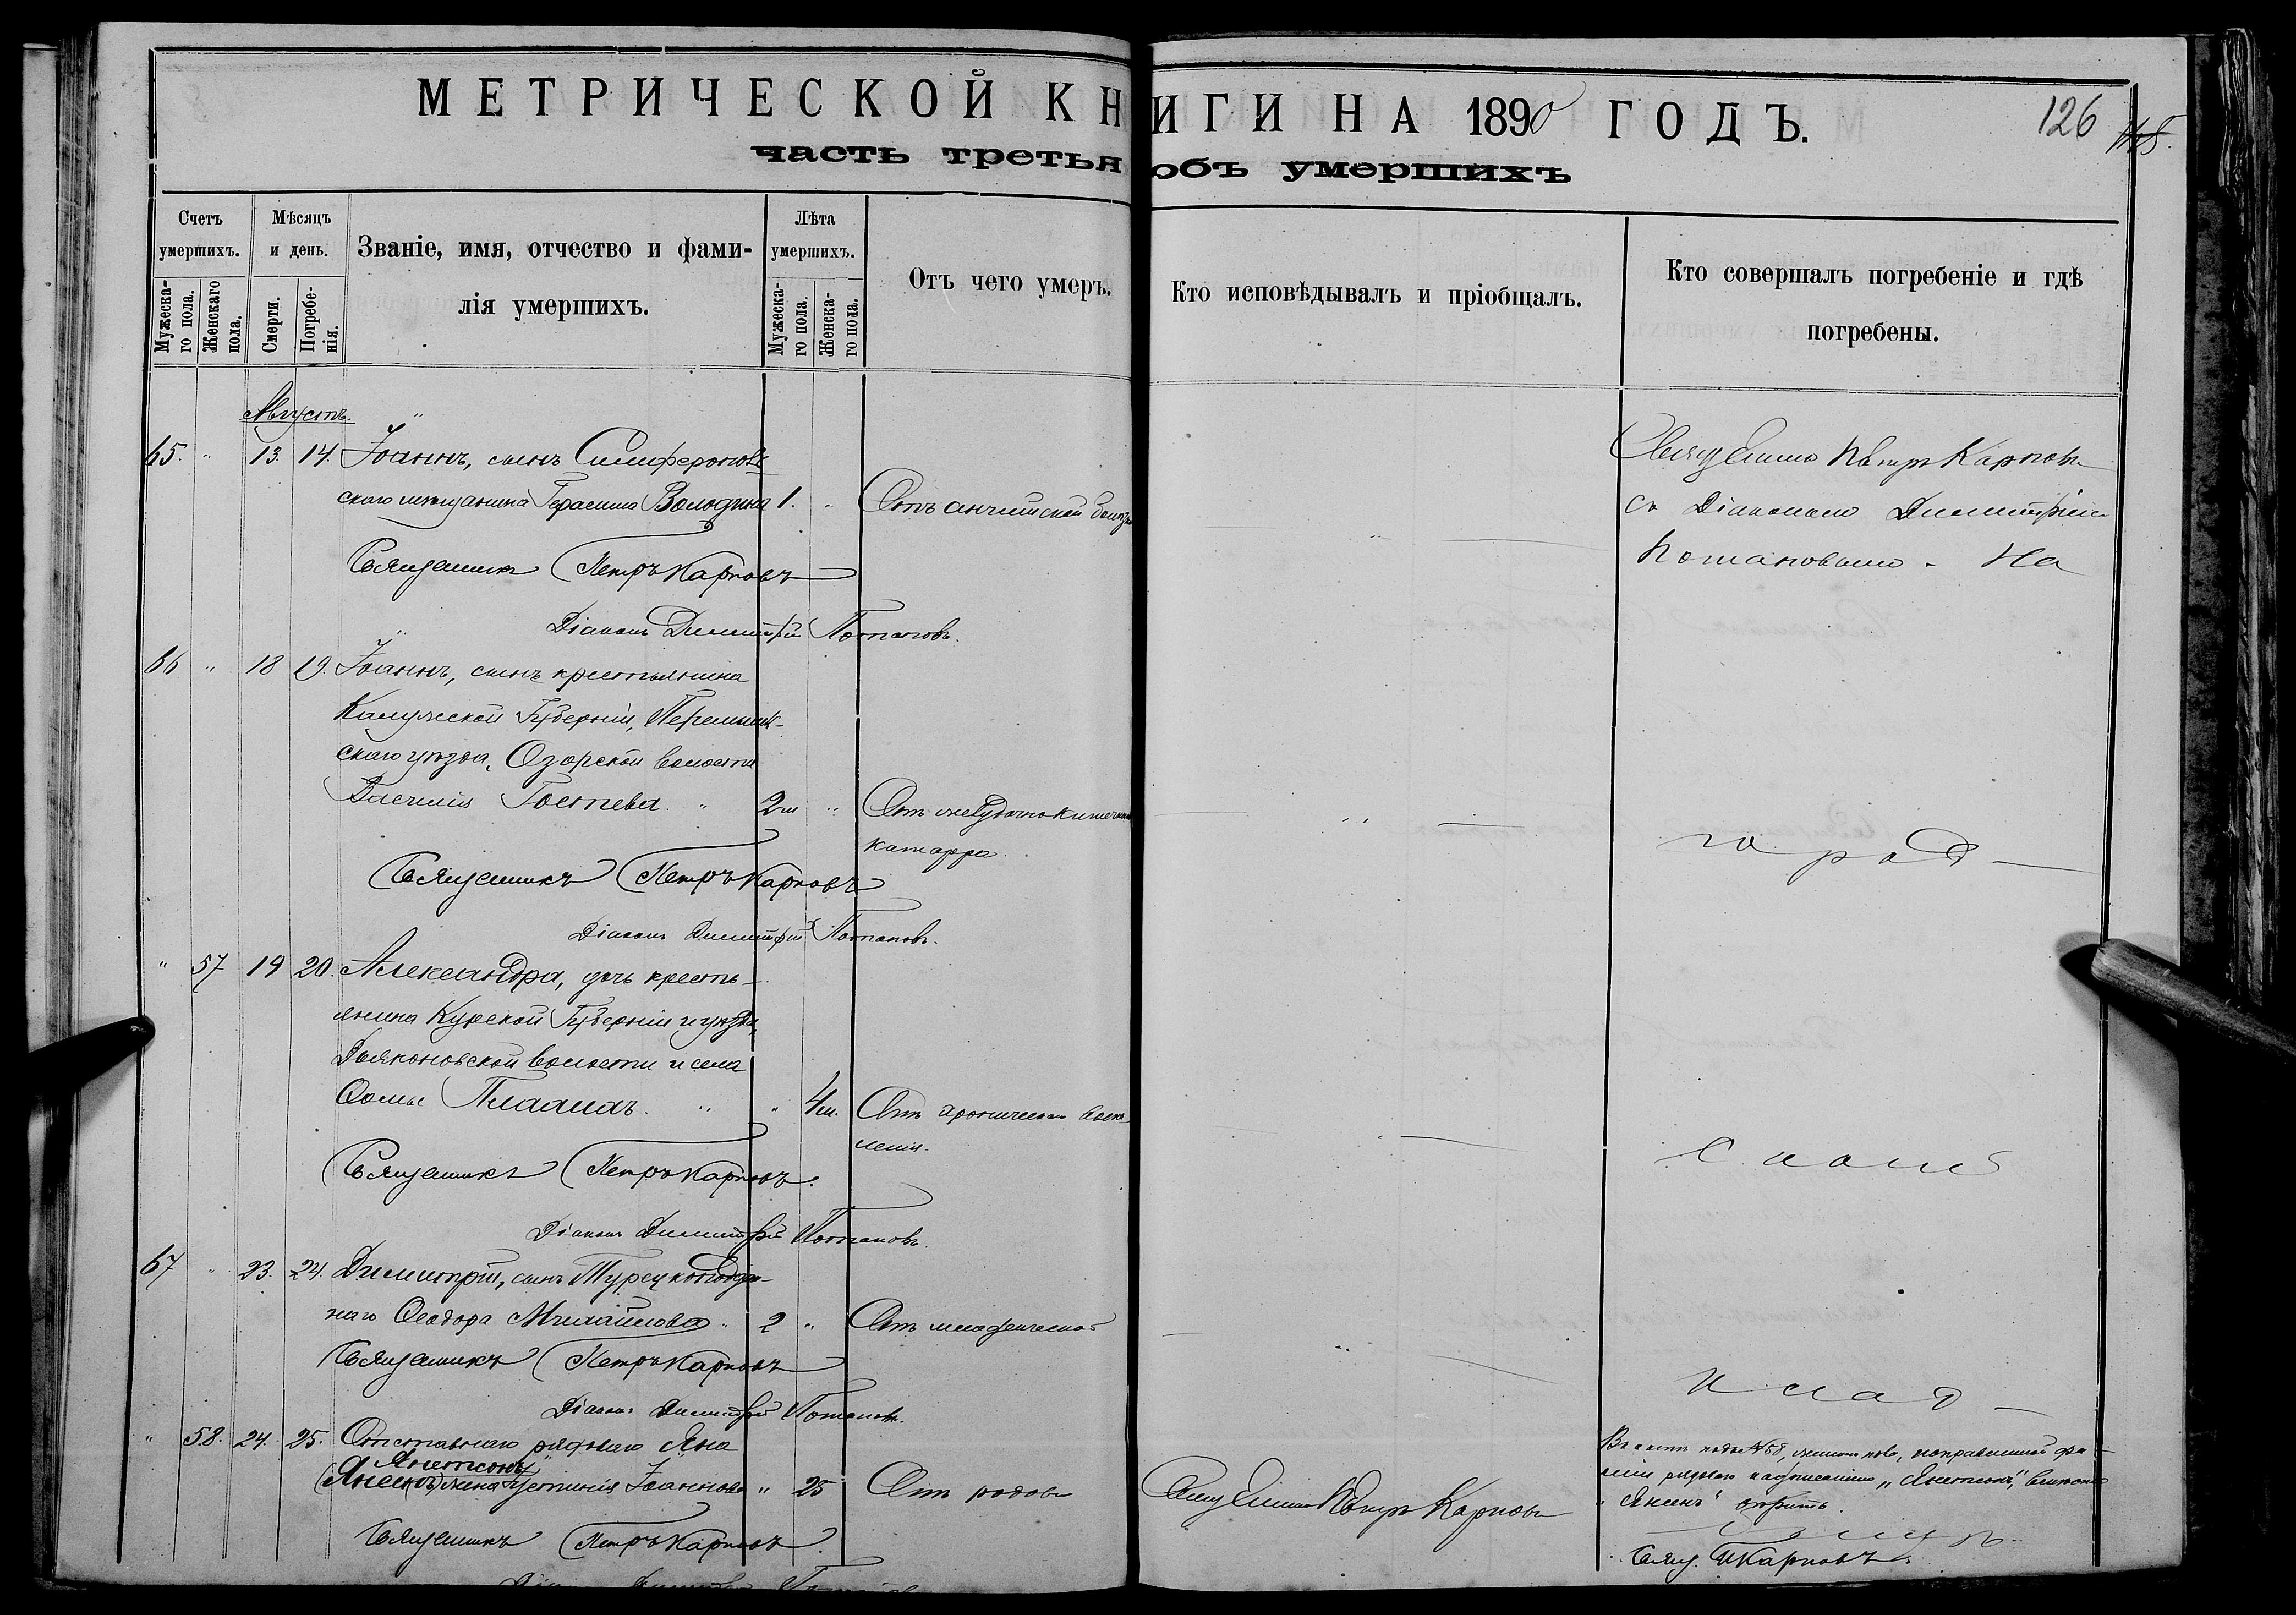 МЕТРИЧЕСКОЙ КНИГИ НА 1890 ГОДЪ.
126
часть третья объ умершихъ
Счетъ умершихъ.
Мужескаго пола.
Женскаго пола.
Мѣсяцъ и день.
Смерти.
Погребенія.
Званіе, имя, отчество и фамилія умершихъ.
Лѣта умершихъ.
Мужескаго пола.
Женскаго пола.
Отъ чего умеръ.
Кто исповѣдывалъ и пріобщалъ.
Кто совершалъ погребеніе и гдѣ погребены.
Августъ.
65. " 13. 14. Іоаннъ, сынъ Симферополь
скаго мѣщанина Герасима Володина 1. " Отъ англійской болѣзн
Священникъ Петръ Карповъ
Діаконъ Димитрій Потаповъ.
Священникъ Петръ Карповъ
съ Діакономъ Димитріемъ
Потаповымъ. На
66 " 18 19. Іоаннъ, сынъ крестьянина
Калужской Губерніи, Перемышль-
скаго уѣзда, Озорской волости
Василія Гостева. " 2 м " Отъ желудочно кишечнаго
катарра.
го род-
Священникъ Петръ Карповъ
Діаконъ Димитрій Потаповъ.
" 57 19 20. Александра, дочь кресть-
янина Курской Губерніи и уѣзда,
Дьяконовской волости и села
Ѳомы " " 4 м. Отъ хроническаго воспа-
ленія.
скомъ
Священникъ Петръ Карповъ.
Діаконъ Димитрій Потаповъ.
67 " 23. 24. Димитрій, сынъ Турецкоподдан-
наго Ѳеодора Михайлова " 2 " Отъ младенческой
Священникъ Петръ Карповъ
Діаконъ Димитрій Потаповъ.
клад-
" 58. 24. 25. Отставнаго рядоваго Яна
Янетсонъ
(Янсенъ) жена Устинія Іоаннова " 25 Отъ родовъ
Священникъ Петръ Карповъ
Въ актѣ подъ № 58, исправленной фа-
миліи рядоваго надписанному „Янетсонъ",
„Янсенъ"
Священникъ Петръ Карповъ.
Свящ. П Карповъ.